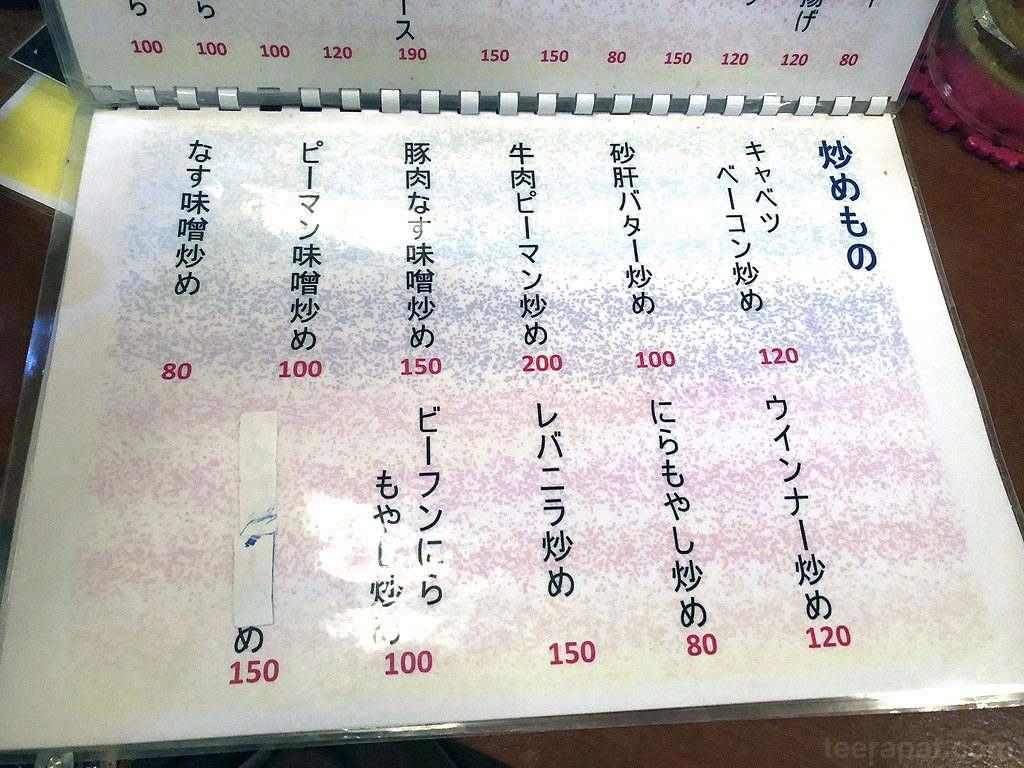 100 100 100 120 190 150 150 80 150 120 120 80
炒めもの
キャベツ
ベーコン炒め
120
砂肝バター炒め
100
牛肉ピーマン炒め
200
豚肉なす味噌炒め
150
ピーマン味噌炒め
100
なす味噌炒め
80
ウインナー炒め
120
にらもやし炒め
80
レバニラ炒め
150
ビーフンにら
もやし炒め
100
め
150
teerapat.com